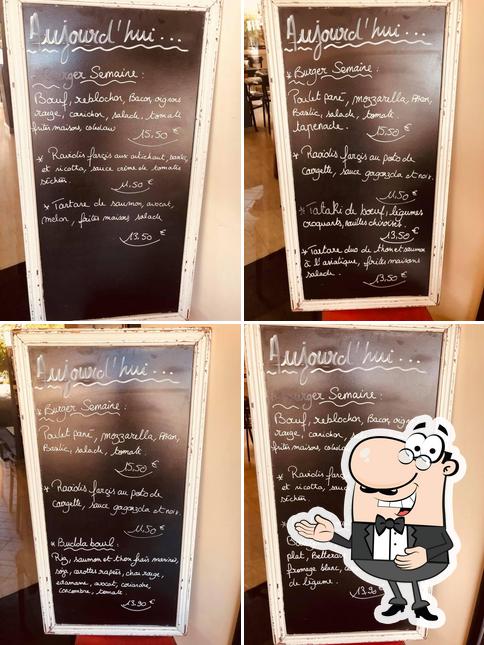 Aujourd'hui...
Burger Semaine :
Bœuf, reblochon, Bacon, oignons
rouge, cornichon, salade, tomate
frites maisons, coleslaw
15,50 €
* Raviolis farçis aux artichaut, basilic
et ricotta, sauce crème de tomates
séchées.
11,50 €
* Tartare de saumon, avocat,
melon, frites maisons salade
13,50 €
Aujourd'hui...
* Burger Semaine :
Poulet pané, mozzarella, Bacon,
Basilic, salade, tomate.
tapenade.
15,50 €
* Raviolis farçis au pesto de
courgette, sauce gorgonzola et noix.
11,50 €
* Tataki de bœuf, légumes
croquants, nouilles chinoises.
13,50 €
* Tartare duo de thon et saumon
à l'asiatique, frites maisons
salade.
13,50 €
Aujourd'hui...
* Burger Semaine :
Poulet pané, mozzarella, Bacon,
Basilic, salade, tomate.
15,50 €
* Raviolis farçis au pesto de
courgette, sauce gorgonzola et noix.
11,50 €
* Buddha bowl :
Riz, saumon et thon frais marinés,
soja, carottes rapées, chou rouge,
édamame, avocat, coriandre,
concombre, tomate.
13,90 €
Aujourd'hui...
Burger Semaine :
Bœuf, reblochon, Bacon,
rouge, cornichon,
frites maisons,
* Raviolis
et ricotta, sauce
séchées.
plat,
fromage blanc,
de légume.
13,90